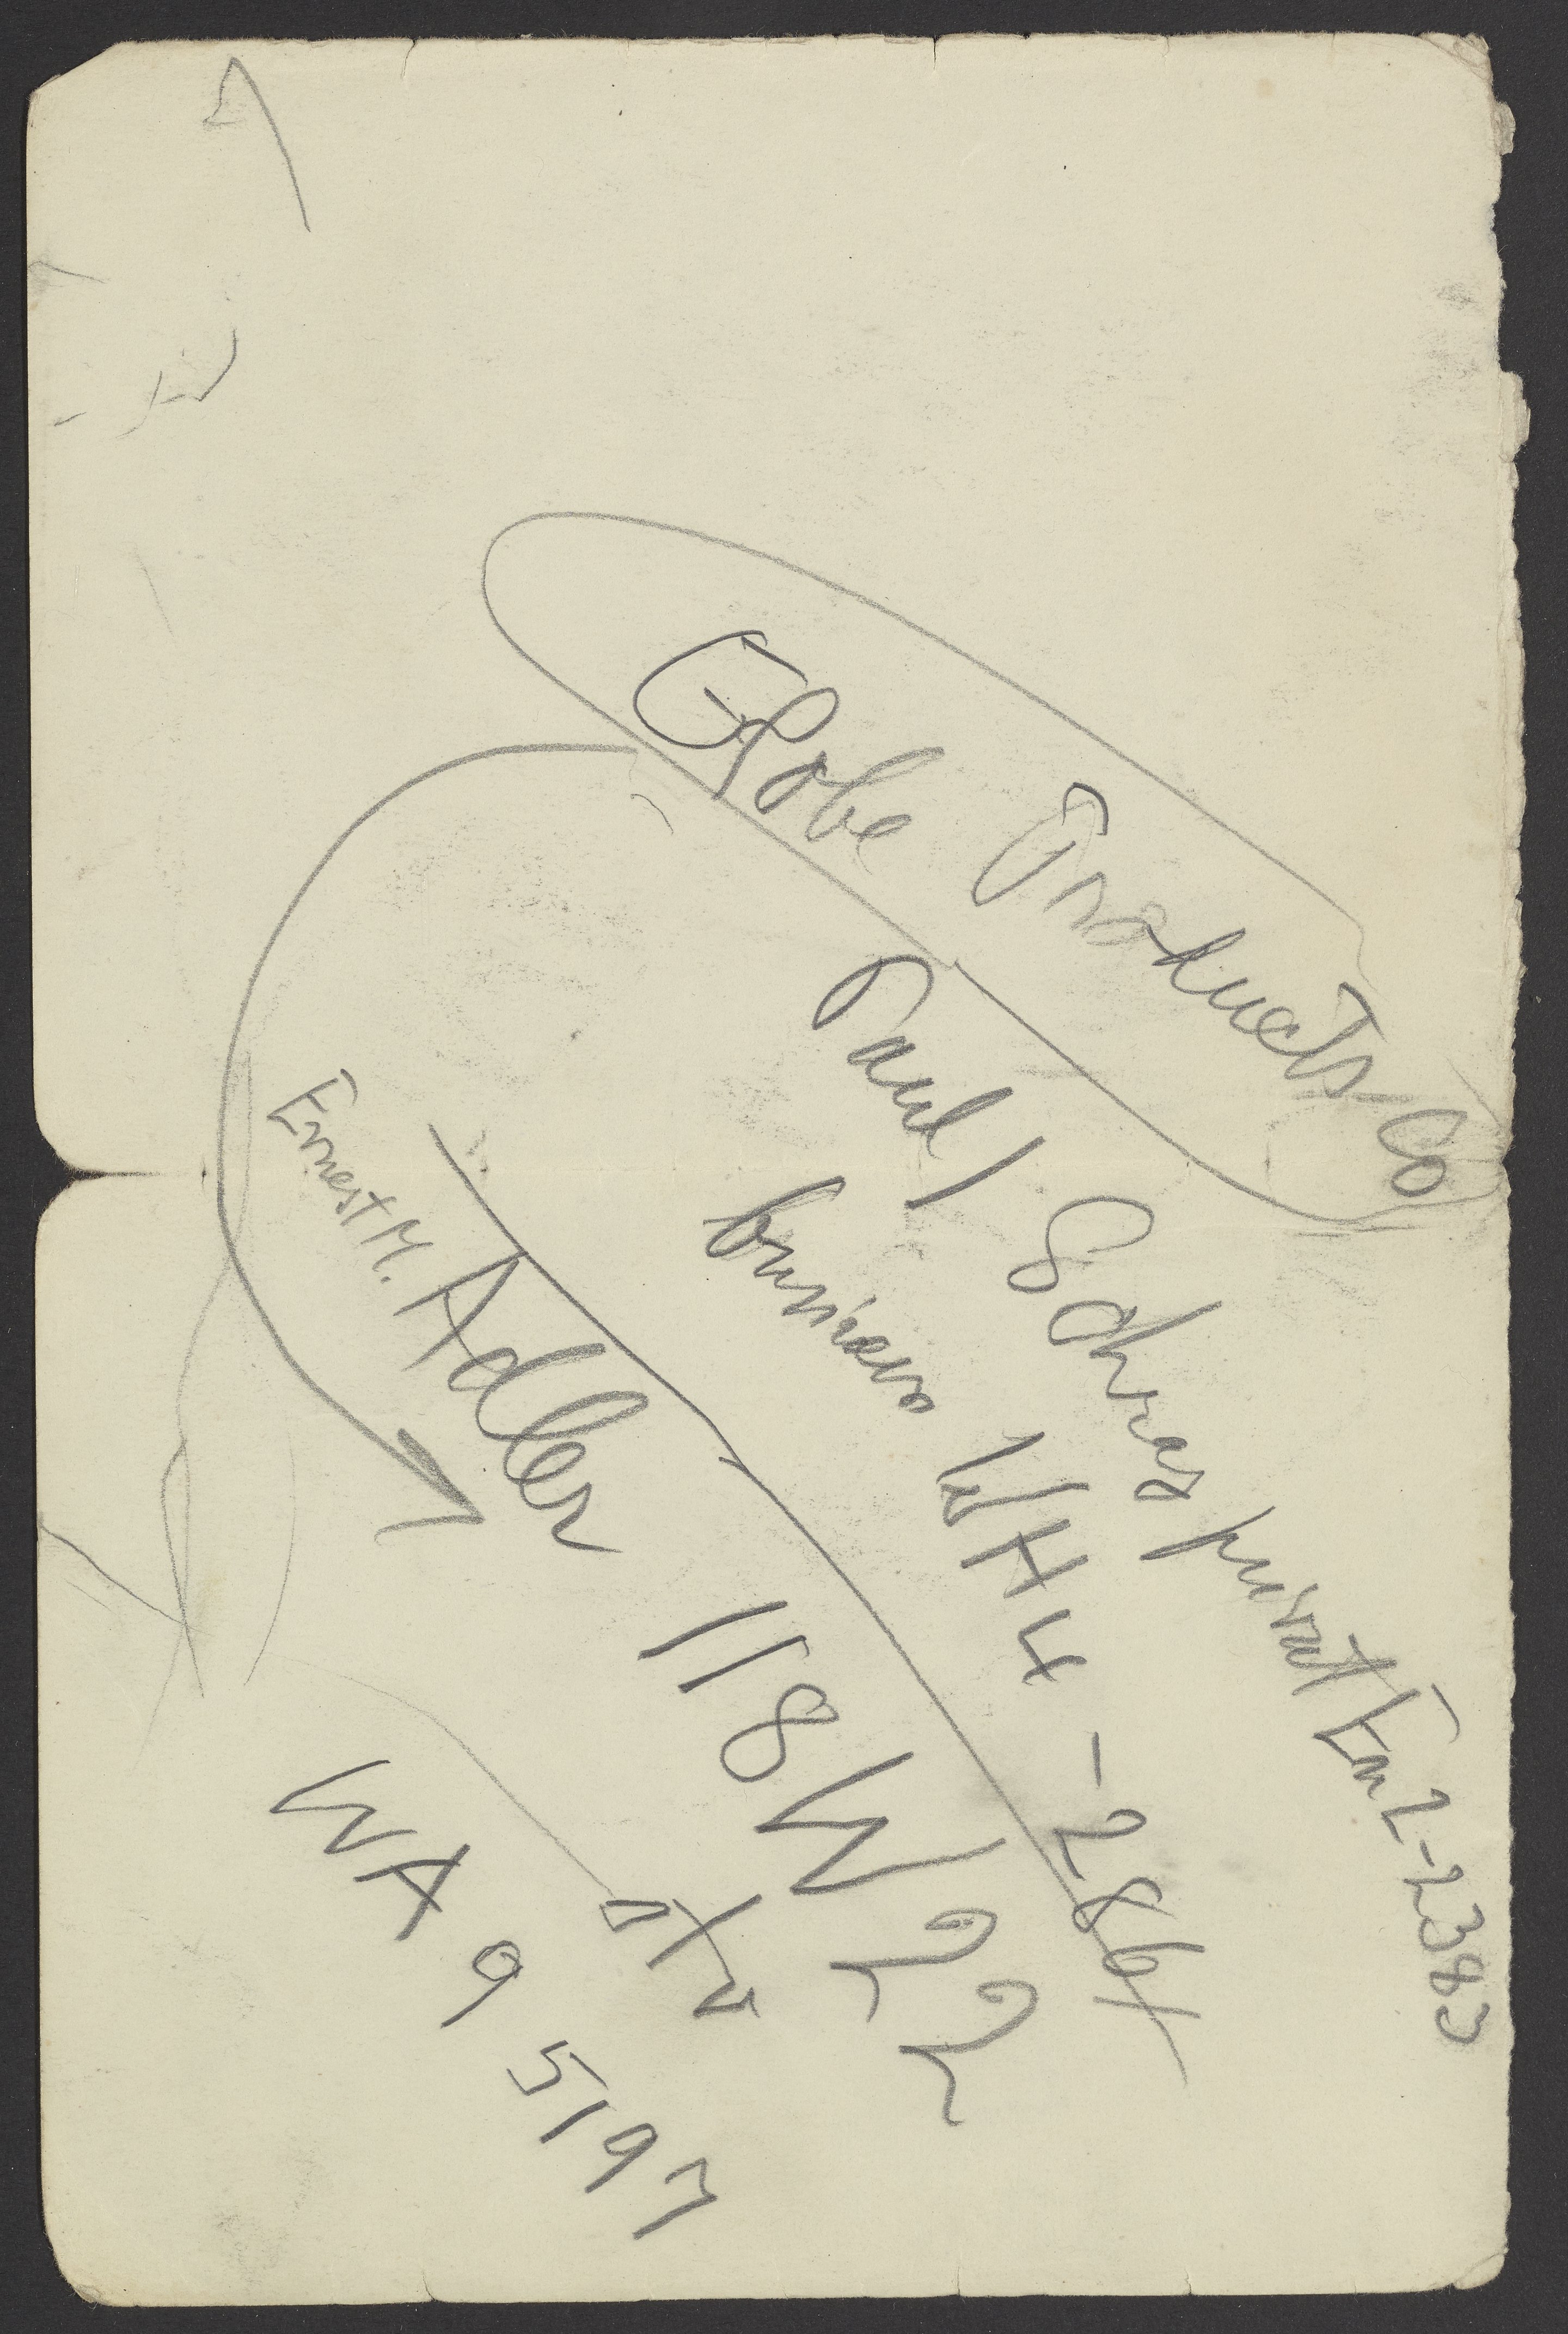 Globe Products Co
Paul Schrag privat En 2-2383
business WH 4-2864
Ernest M. Adler 118 W 22
WA 9 5197